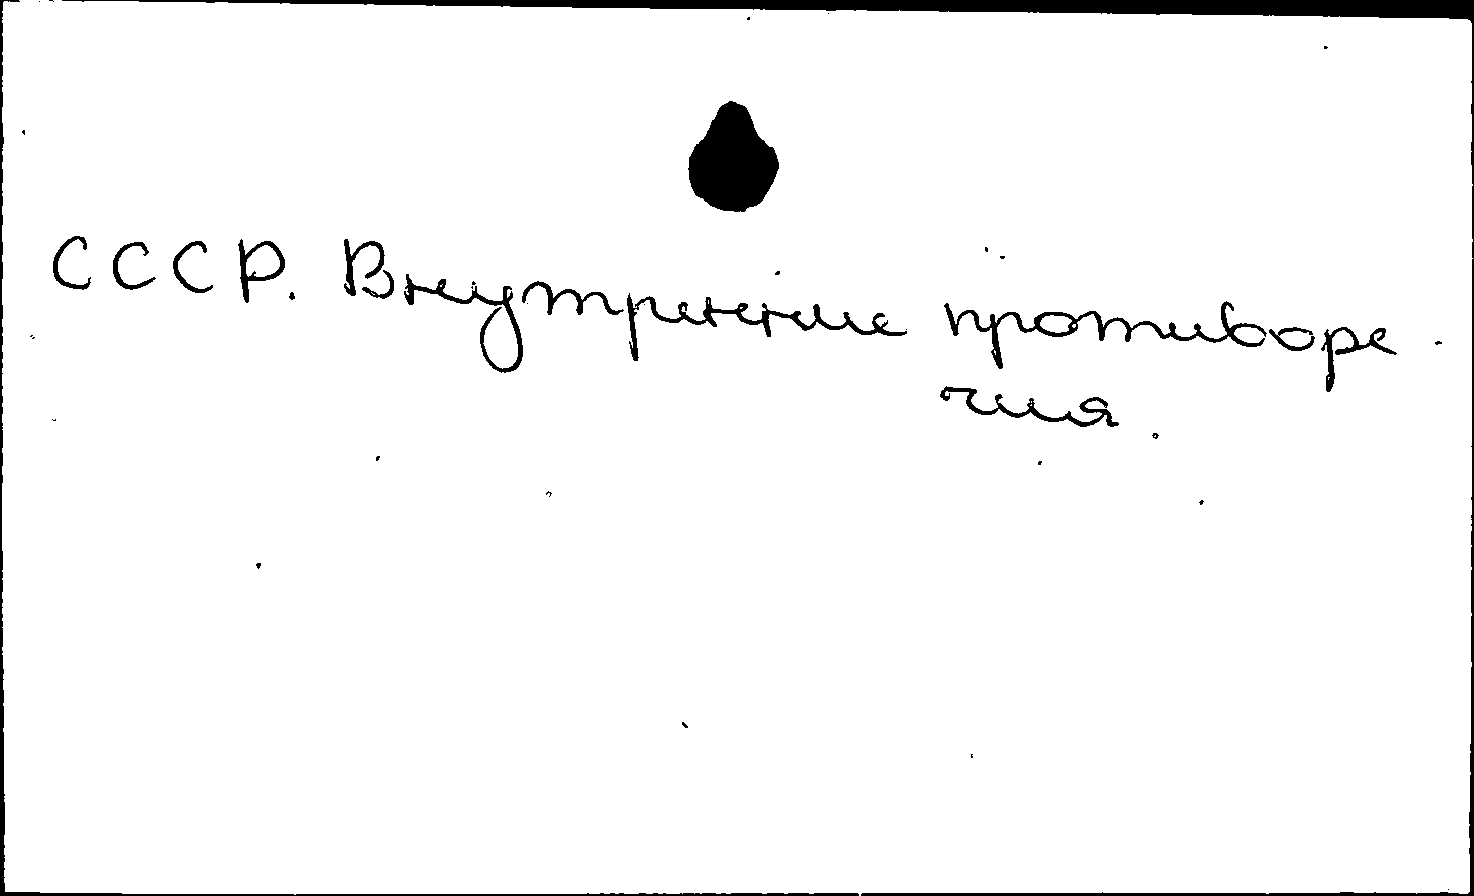 СССР. Внутренние противоре
чия.